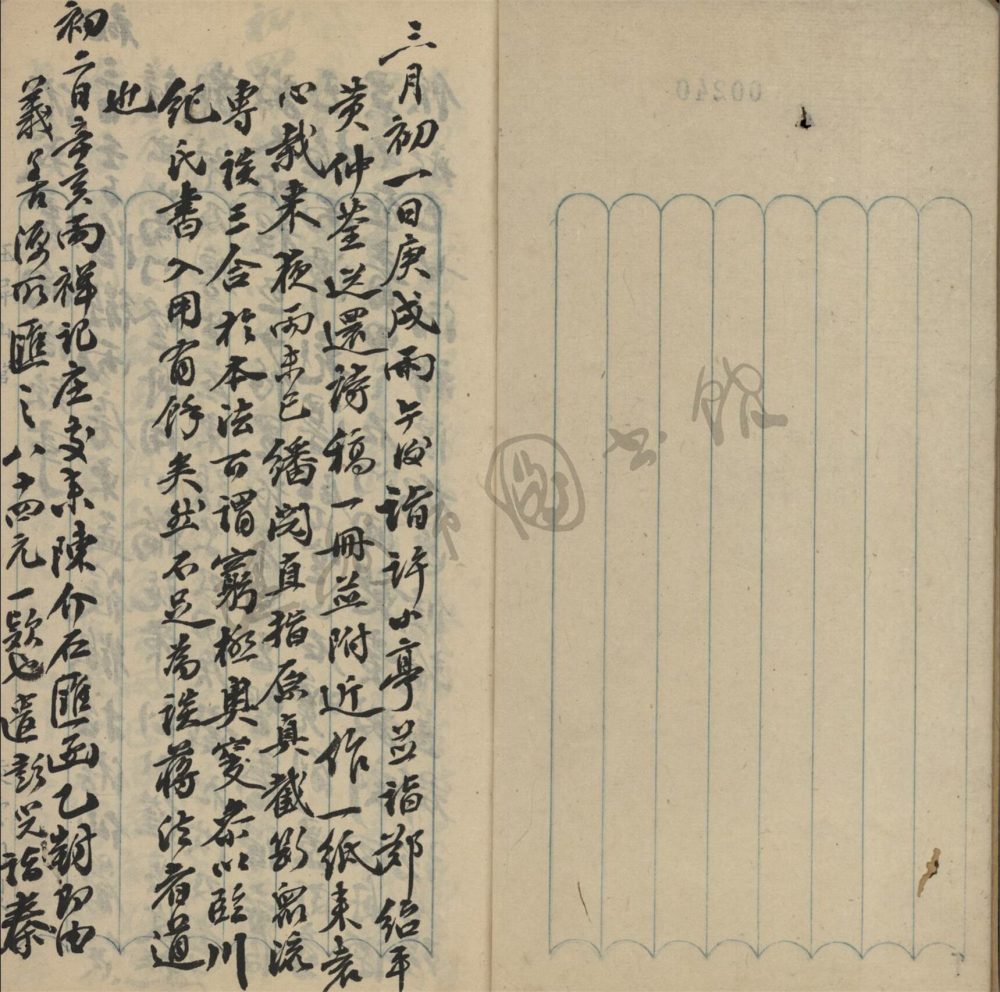 三月初一日庚戌雨午後詣許小亭並詣鄭紹平
黃仲荃送還詩稿一冊並附近作一紙來袁
心栽來夜雨未已繙閱直指原真截斷眾流
專談三合於本法可謂窮極奧窔參以臨川
范氏書入用有餘矣然不足為談蔣法者道
也
初二日辛亥雨祥記庄交來陳介石匯函乙封即由
義善源所匯之八十四元一款也遣彭兒詣秦
圖書館
00240